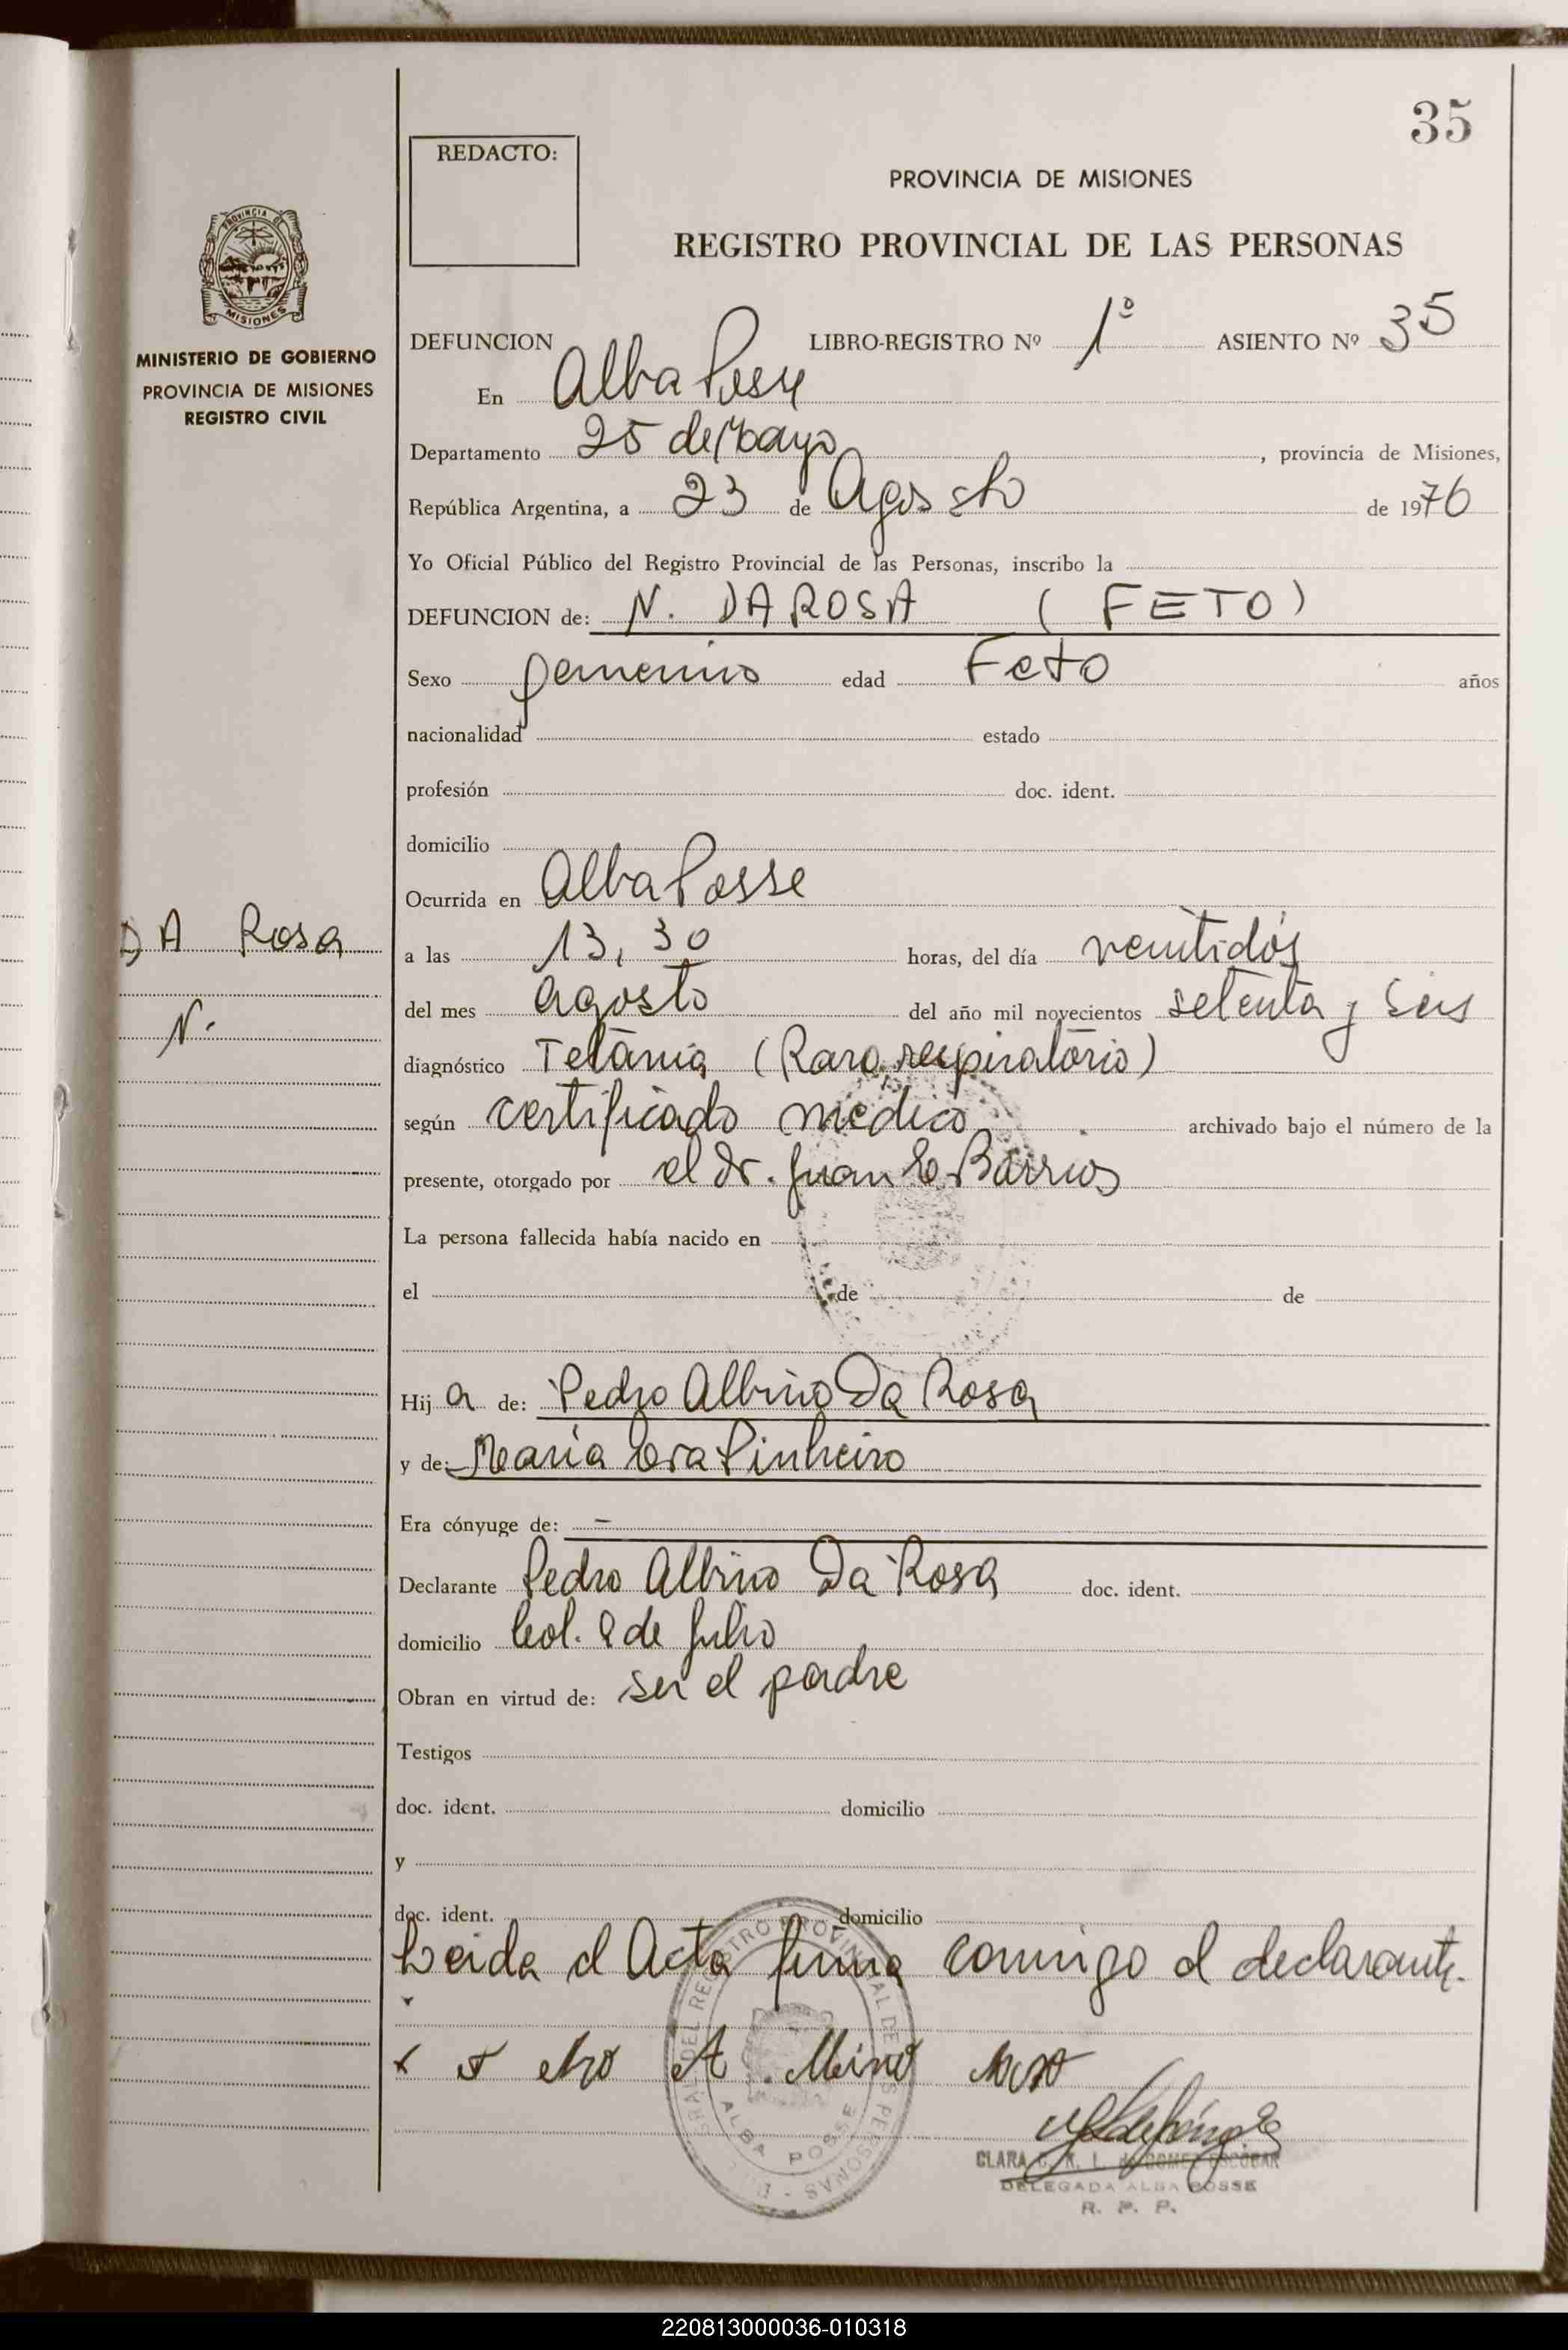 35
REDACTO:
PROVINCIA DE MISIONES
REGISTRO PROVINCIAL DE LAS PERSONAS
PROVINCIA DE
MISIONES
MINISTERIO DE GOBIERNO
PROVINCIA DE MISIONES
REGISTRO CIVIL
DEFUNCION LIBRO-REGISTRO Nº 1º ASIENTO Nº 35
En Alba Posse
Departamento 25 de Mayo, provincia de Misiones,
República Argentina, a 23 de Agosto de 1976
Yo Oficial Público del Registro Provincial de las Personas, inscribo la
DEFUNCION de: N. DA ROSA (FETO)
Sexo femenino edad Feto años
nacionalidad estado
profesión doc. ident.
domicilio
Ocurrida en Alba Posse
DA Rosa
N.
a las 13,30 horas, del día veintidós
del mes agosto del año mil novecientos setenta y seis
diagnóstico Tetania (Paro respiratorio)
según certificado médico archivado bajo el número de la
presente, otorgado por el Dr. Juan E. Barrios
La persona fallecida había nacido en
el de de
Hija de: Pedro Albino Da Rosa
y de: Maria Pinheiro
Era cónyuge de: -
Declarante Pedro Albino Da Rosa doc. ident.
domicilio Col. 9 de Julio
Obran en virtud de: ser el padre
Testigos
doc. ident. domicilio
y
doc. ident. domicilio
Leida el Acta firma conmigo el declarante.
ALBA POSSE
CLARA C. R. L. de GOMEZ ESCOBAR
DELEGADA ALBA POSSE
R. P. P.
220813000036-010318